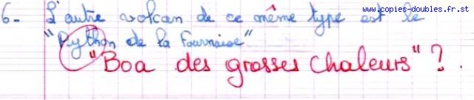 www.copies-doubles.fr.st
6- L'autre volcan de ce même type est le
"Python de la Fournaise"
"Boa des grosses chaleurs"?.